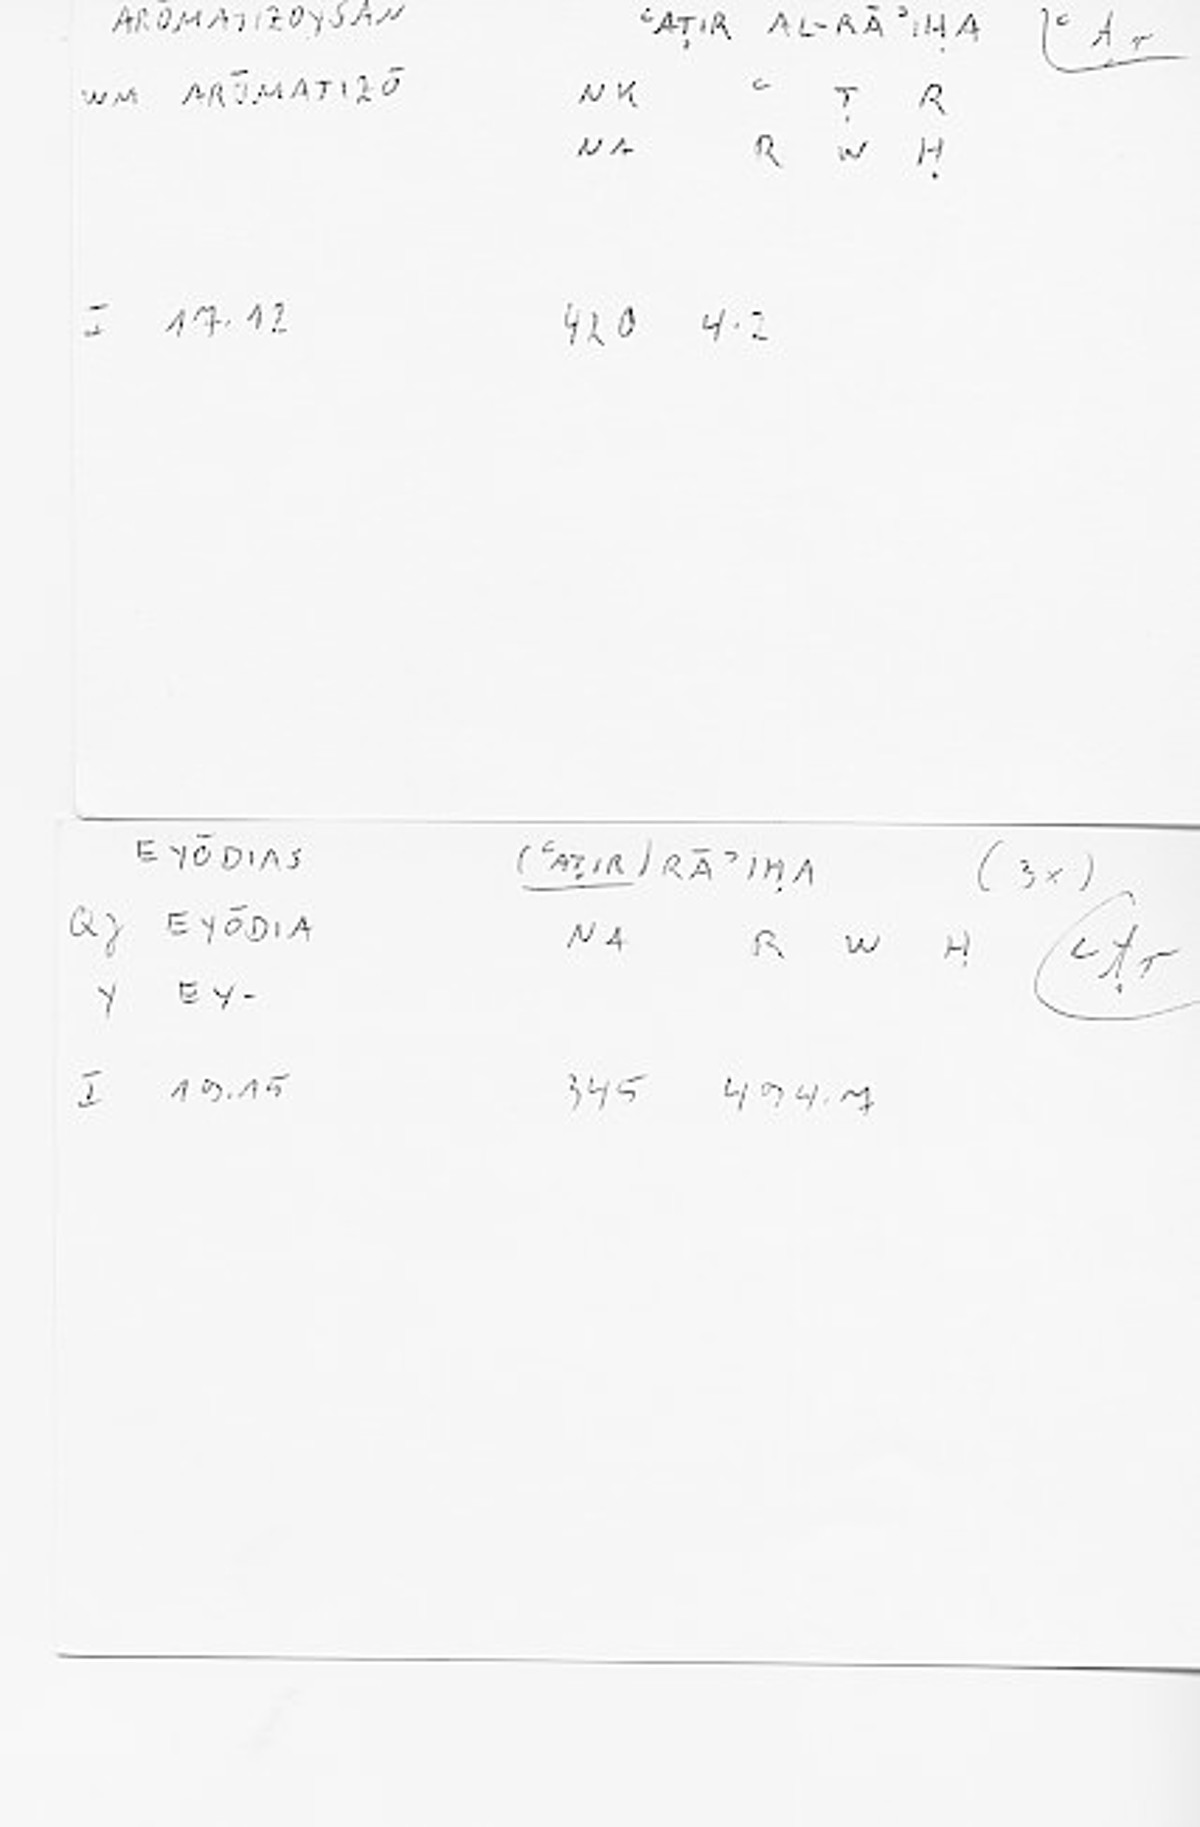 ARŌMATIZOYSAN ʿAṬIR AL-RĀʾIḤA ʿAṬ
WM ARŌMATIZŌ NK ʿ Ṭ R
NA R W Ḥ
I 17.12 420 4.2
EYŌDIAS (ʿAṬIR) RĀʾIḤA (3x)
QZ EYŌDIA NA R W Ḥ ʿAṬ
Y EY-
I 19.15 345 494.7